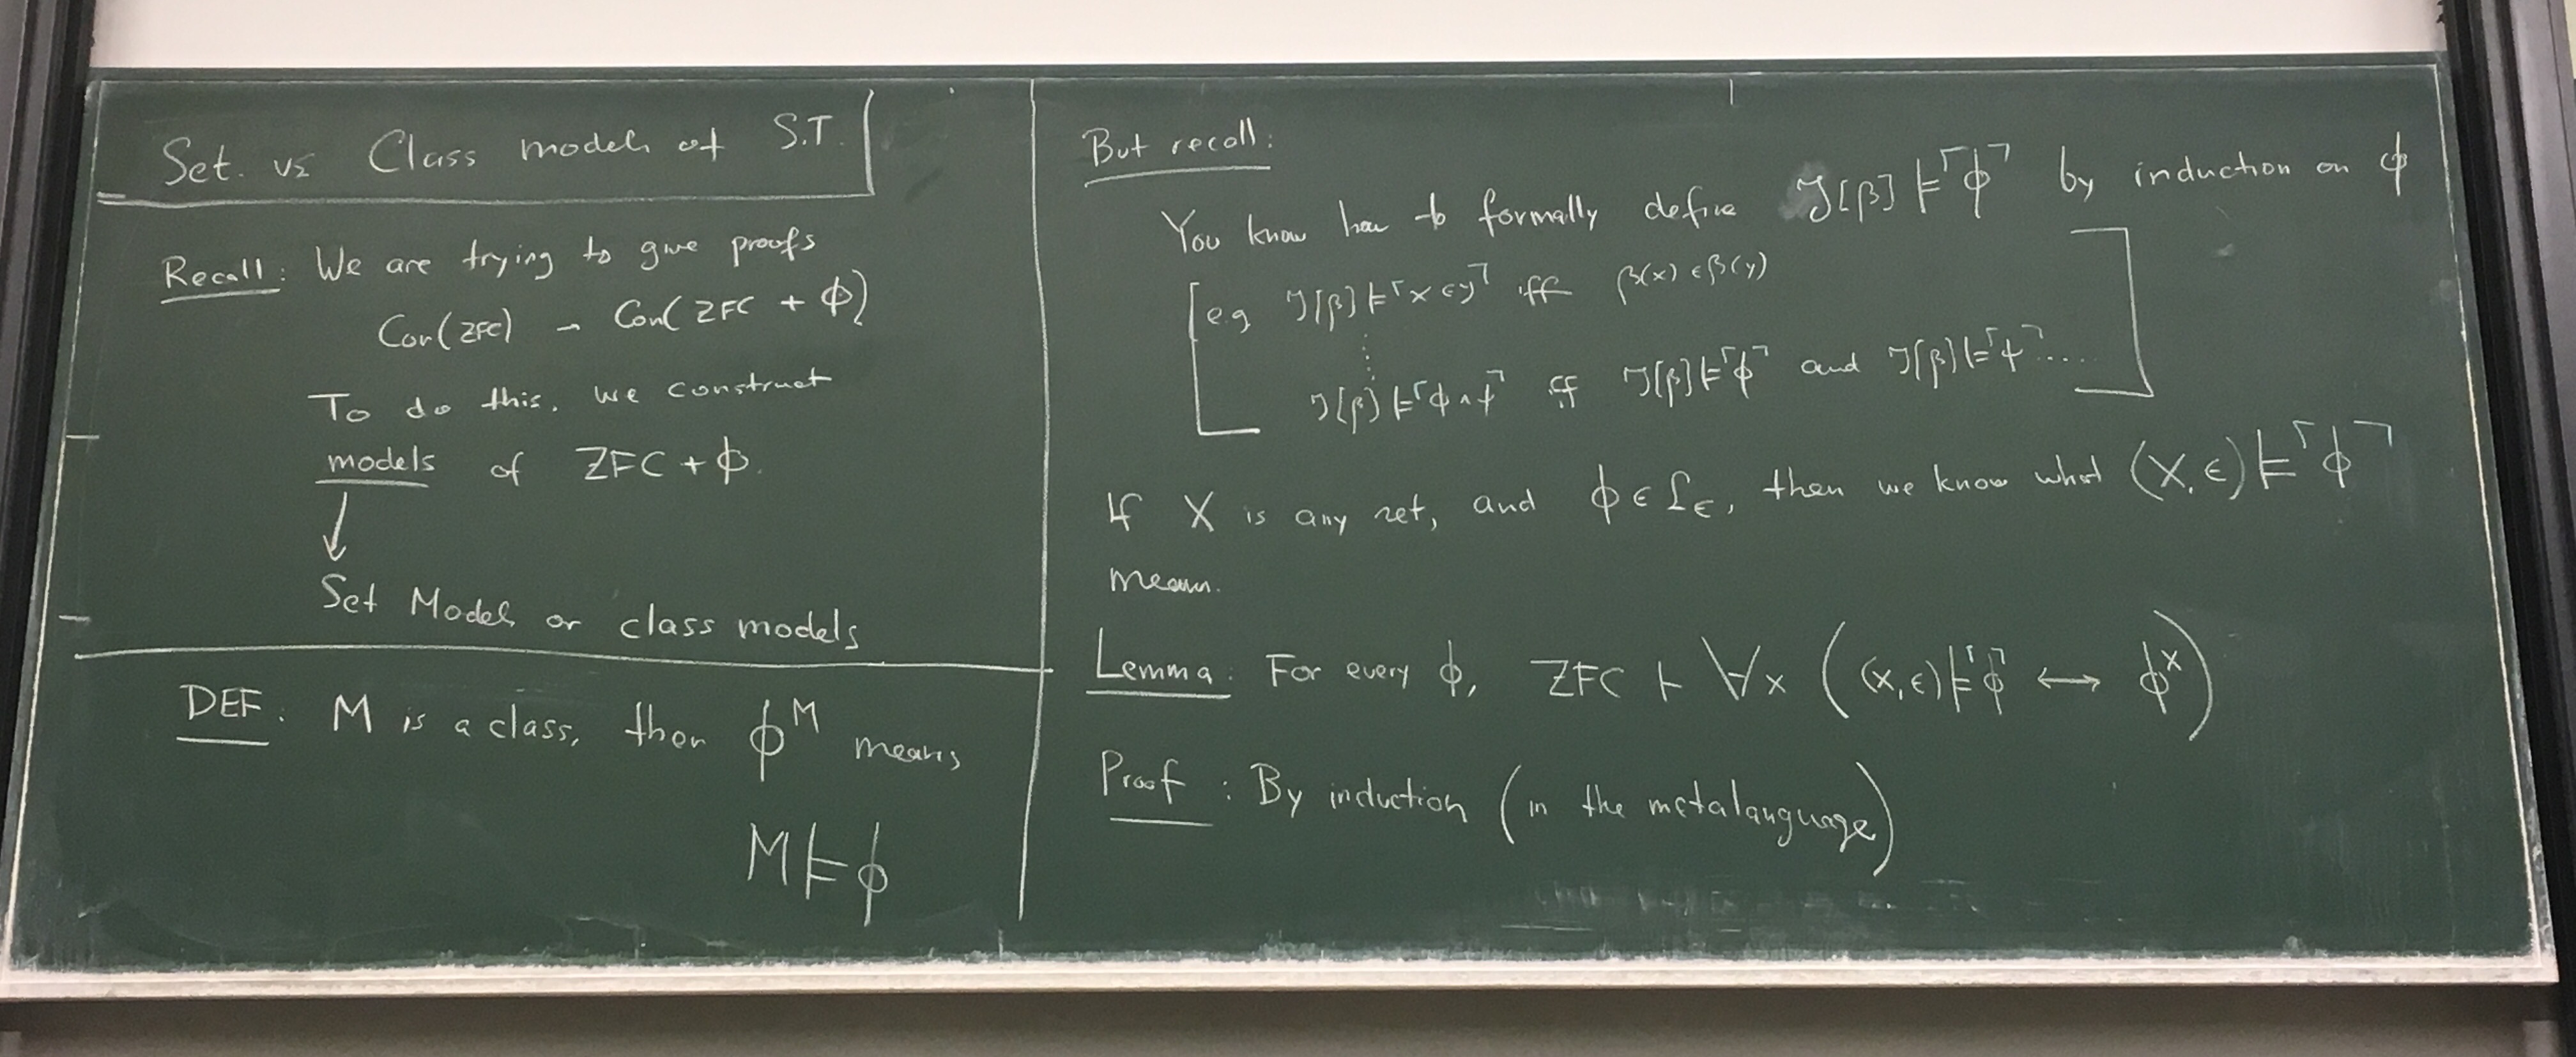 Set vs Class models of S.T.
Recall: We are trying to give proofs
Con(ZFC) → Con(ZFC + ϕ)
To do this, we construct
models of ZFC + ϕ.
↓
Set Models or class models
DEF: M is a class, then ϕ^M means
M ⊨ ϕ
But recall:
You know how to formally define ℑ[β] ⊨ ⌜ϕ⌝ by induction on ϕ
[e.g ℑ[β] ⊨ ⌜x ∈ y⌝ iff β(x) ∈ β(y)
⋮
ℑ[β] ⊨ ⌜ϕ ∧ ψ⌝ iff ℑ[β] ⊨ ⌜ϕ⌝ and ℑ[β] ⊨ ⌜ψ⌝ ....]
If X is any set, and ϕ ∈ L_∈, then we know what (X, ∈) ⊨ ⌜ϕ⌝
means.
Lemma: For every ϕ, ZFC ⊢ ∀x ((x, ∈) ⊨ ⌜ϕ⌝ ↔ ϕ^x)
Proof: By induction (in the metalanguage)